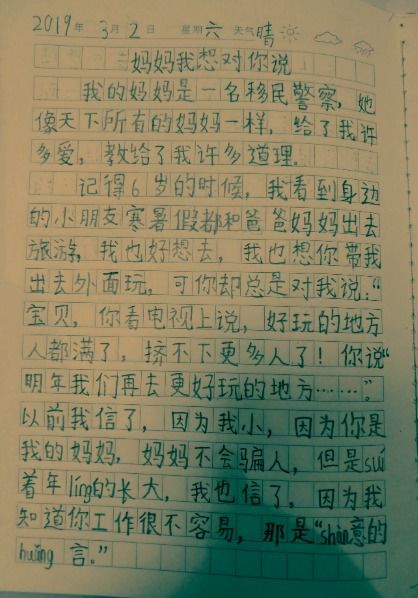 2019年 3月2日 星期六 天气晴
妈妈我想对你说
我的妈妈是一名移民警察,她
像天下所有的妈妈一样,给了我许
多爱,教给了我许多道理。
记得6岁的时候,我看到身边
的小朋友寒暑假都和爸爸妈妈出去
旅游,我也好想去,我也想你带我
出去外面玩,可你却总是对我说:“
宝贝,你看电视上说,好玩的地方
人都满了,挤不下更多人了!你说“
明年我们再去更好玩的地方……”。
以前我信了,因为我小,因为你是
我的妈妈,妈妈不会骗人,但是suí
着年líng的长大,我也信了,因为我
知道你工作很不容易,那是“shàn意的
huǎng言。”